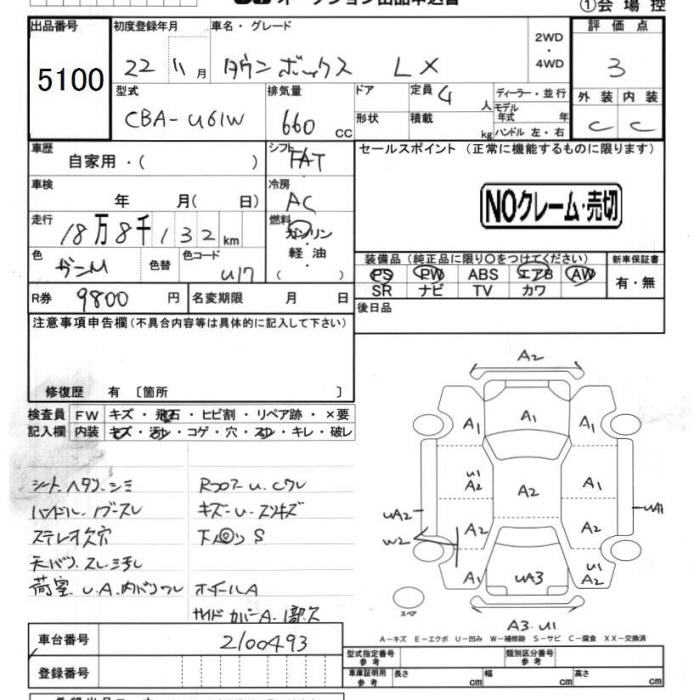 ①会場控
出品番号 初度登録年月 車名・グレード 評価点
5100 22 11月 タウンボックス LX 2WD・4WD 3
型式 排気量 ドア 定員 4人 ディーラー・並行 外装 内装
CBA-U61W 660cc 形状 積載 kg モデル年式 年 ハンドル 左・右 C C
車歴 自家用・( ) シフト FAT セールスポイント (正常に機能するものに限ります)
車検 年 月( 日) 冷房 AC
NOクレーム・売切
走行 18万8千132km 燃料 ガソリン 軽油 ( )
色 色替 色コード U17
装備品 (純正品に限り○をつけてください) 新車保証書
PS PW ABS エアB AW 有・無
SR ナビ TV カワ
R券 9800円 名変期限 月 日 後日品
注意事項申告欄 (不具合内容等は具体的に記入して下さい)
修復歴 有 〔箇所 〕
検査員 FW キズ・飛石・ヒビ割・リペア跡・×要
記入欄 内装 キズ・汚レ・コゲ・穴・スレ・キレ・破レ
シートヘタリ、シミ
ハンドル、ノブスレ
ステレオ欠穴
天バリ、スレ、汚レ
荷室 U.A.内バリワレ
キズ-U-
S
ホイールA
サイドカバーA、1部欠
A2
A1
A1 A1
U1
A2 A2 A1
UA2 UA1
W2 A2 A1
A1 UA3 U1
A2
スペア
A3-U1
A-キズ E-エクボ U-凹み W-補修跡 S-サビ C-腐食 XX-交換済
車台番号 2100493
型式指定番号 参考 類別区分番号 参考
登録番号 車庫証明用 参考 長さ cm 幅 cm 高さ cm